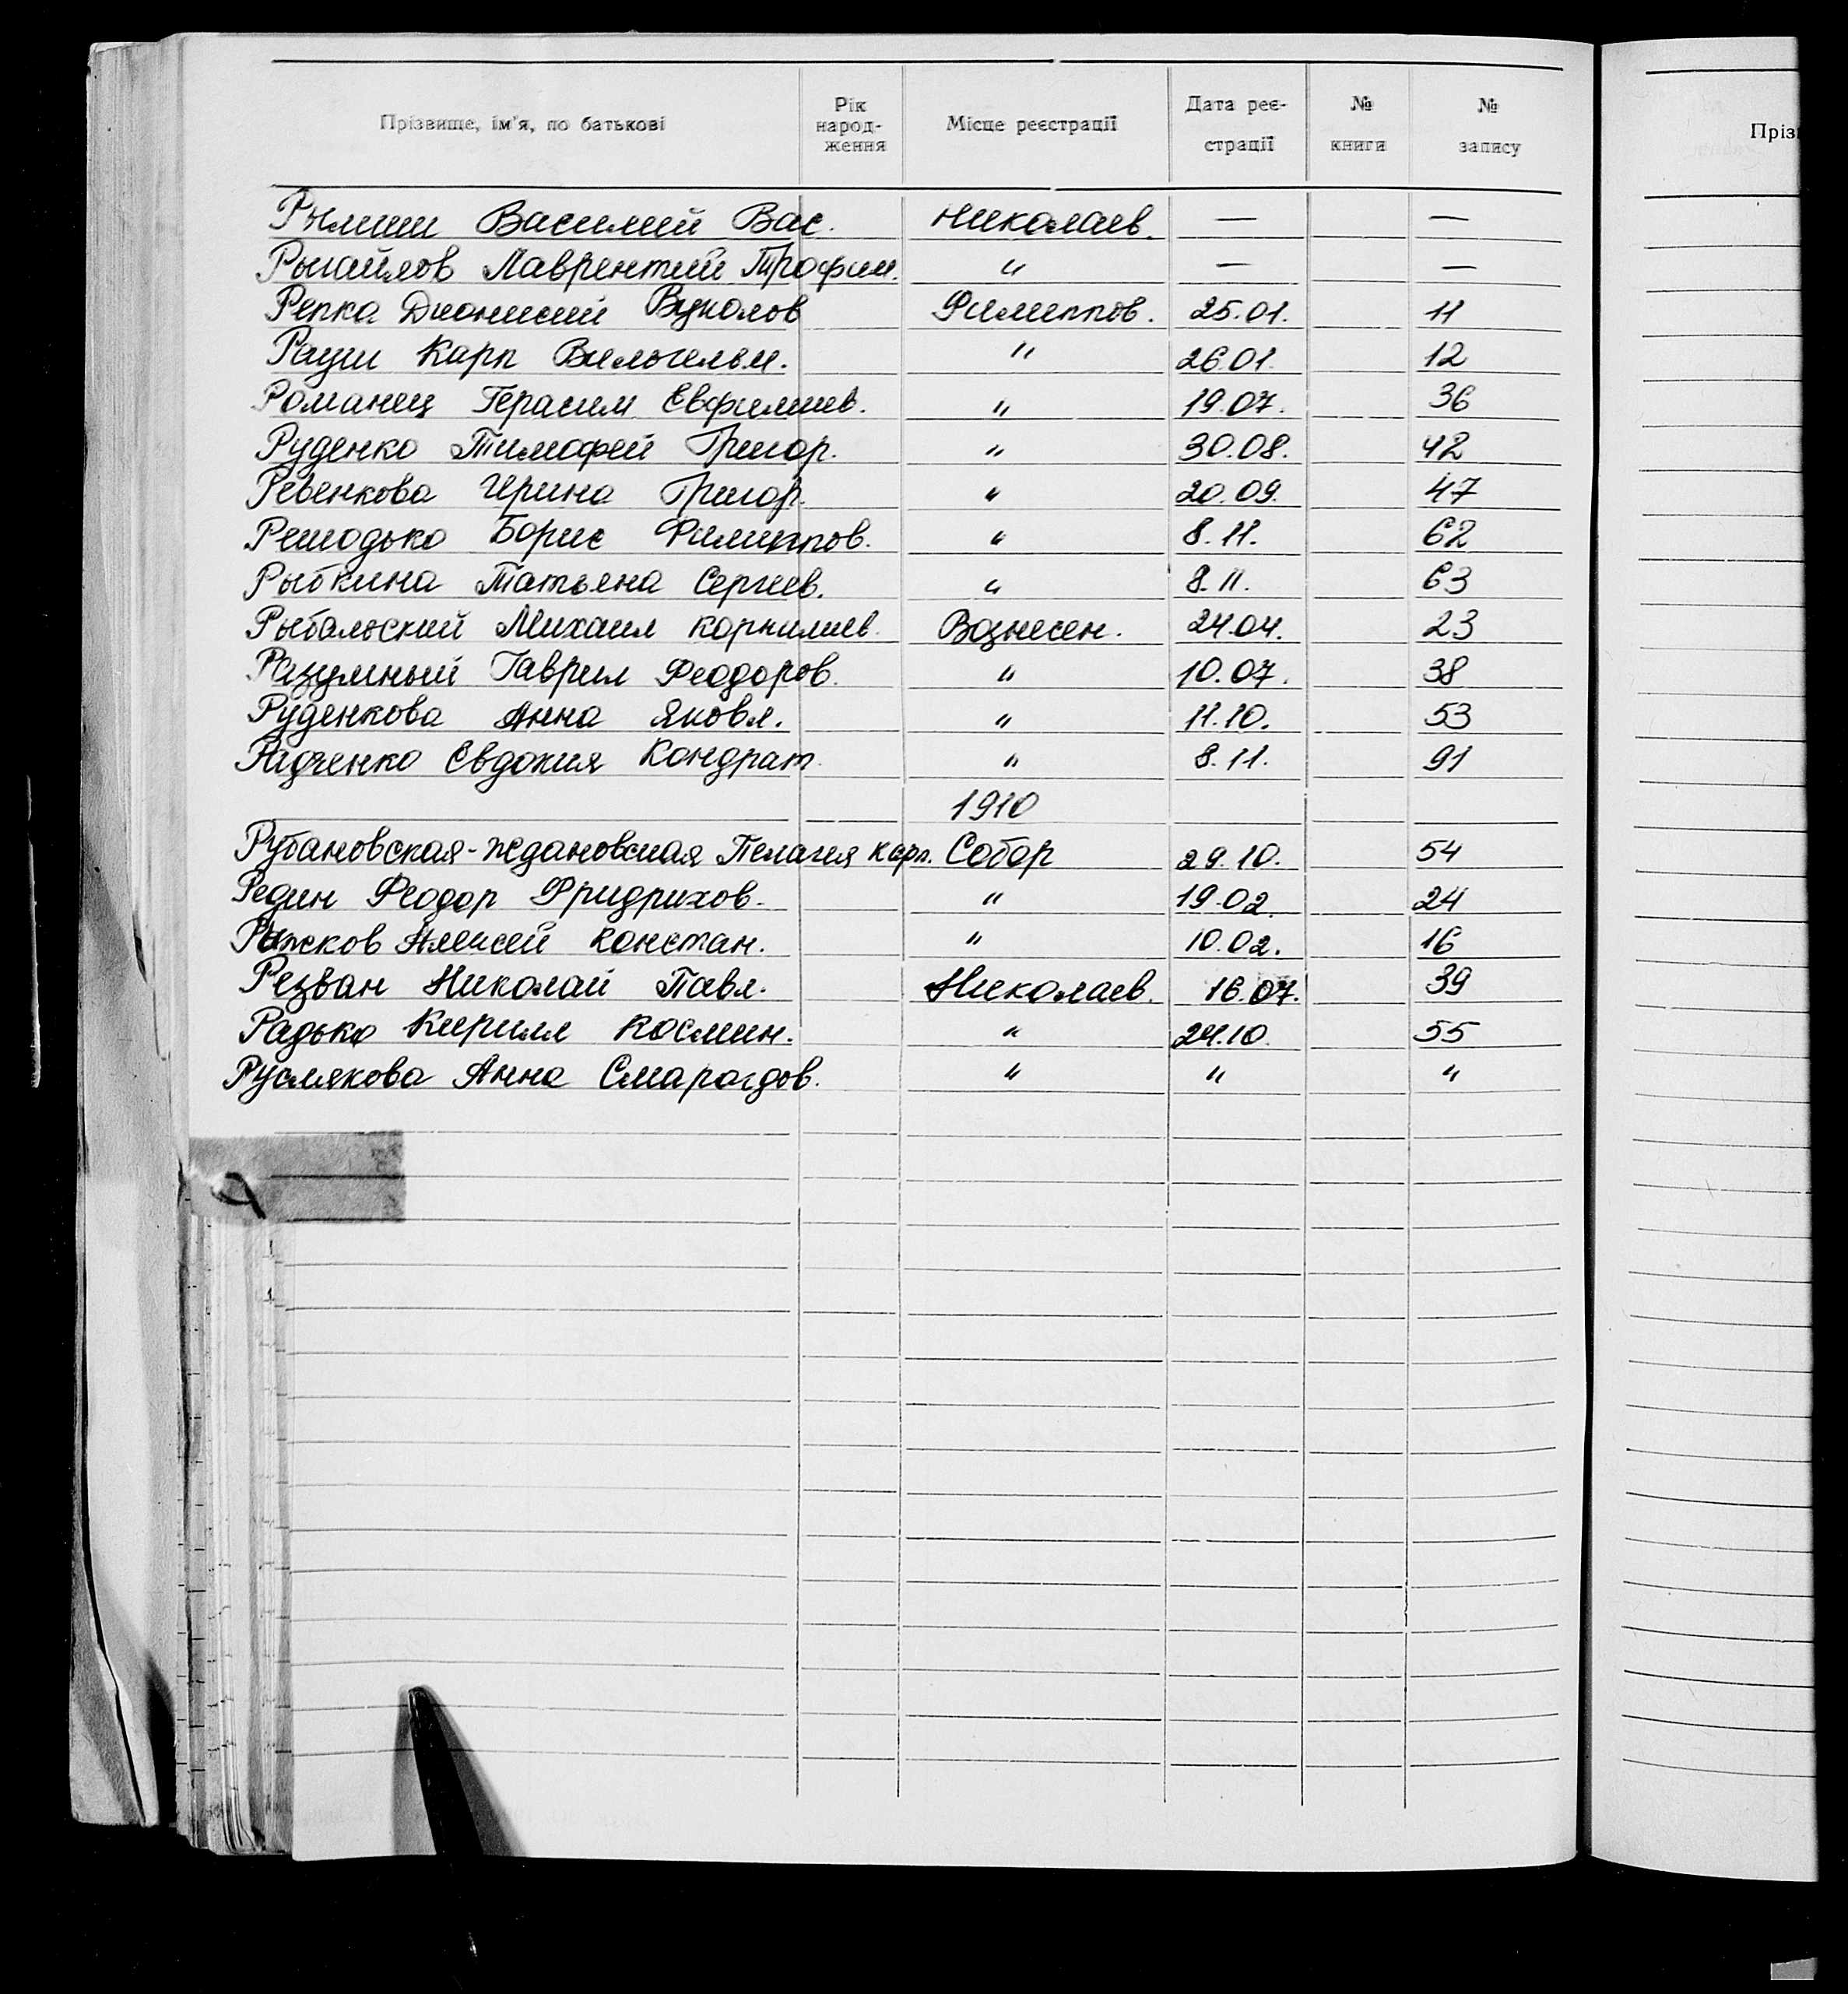 Прізвище, ім'я, по батькові Рік народ- ження Місце реєстрації Дата реє- страції № книги № запису Прізв
Василий Вас. Николаев. — —
Лаврентий Трофим. " — —
Репка Дионисий Вуколов Филиппов. 25.01. 11
Рауш Карп Вильгельм. " 26.01. 12
Романец Герасим Евфимиев. " 19.07. 36
Руденко Тимофей Григор. " 30.08. 42
Ревенкова Ирина Григор. " 20.09. 47
Решодько Борис Филиппов. " 8.11. 62
Рыбкина Татьяна Сергеев. " 8.11. 63
Рыбальский Михаил Корнилиев. Вознесен. 24.04. 23
Разумный Гаврил Феодоров. " 10.07. 38
Руденкова Анна Яковл. " 11.10. 53
Радченко Евдокия Кондрат. " 8.11. 91
1910
Рубановская-Ждановская Пелагея Карп. Собор 29.10. 54
Редин Феодор Фридрихов. " 19.02. 24
Рыжков Алексей Констан. " 10.02. 16
Резван Николай Павл. Николаев. 16.07. 39
Радько Кирилл Космин. " 24.10. 55
Руслякова Анна Смарагдов. " " "